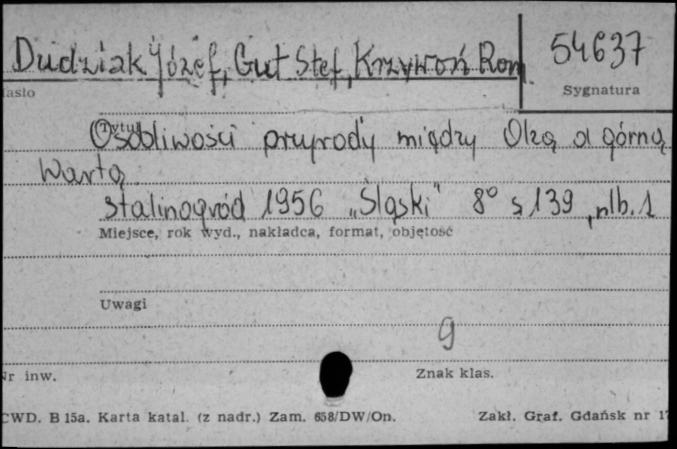 Dudziak Józef, Gut Stef, Krzywoń Rom
54637
asło
Sygnatura
Tytuł
Osobliwości przyrody między Olzą a górną
Wartą
Stalinogród 1956 „Śląski" 8° s 139, nlb. 1
Miejsce, rok wyd., nakładca, format, objętość
Uwagi
9
Nr inw.
Znak klas.
CWD. B 15a. Karta katal. (z nadr.) Zam. 658/DW/On.
Zakł. Graf. Gdańsk nr 1